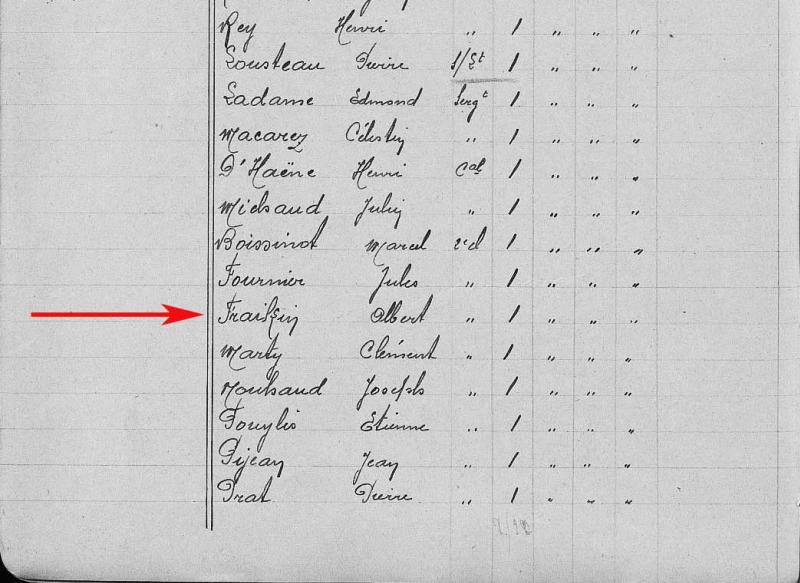 Rey Henri " / " " "
Lousteau Pierre S/Lt / " " "
Ladame Edmond Sergt / " " "
Macarez Célestin " / " " "
D'Haëne Henri Cal / " " "
Michaud Julien " / " " "
Boissinot Marcel 2e cl / " " "
Fournier Jules " / " " "
Fraikin Albert " / " " "
Marty Clément " / " " "
Mouhaud Joseph " / " " "
Etienne " / " " "
Pijean Jean " / " " "
Prat Pierre " / " " "